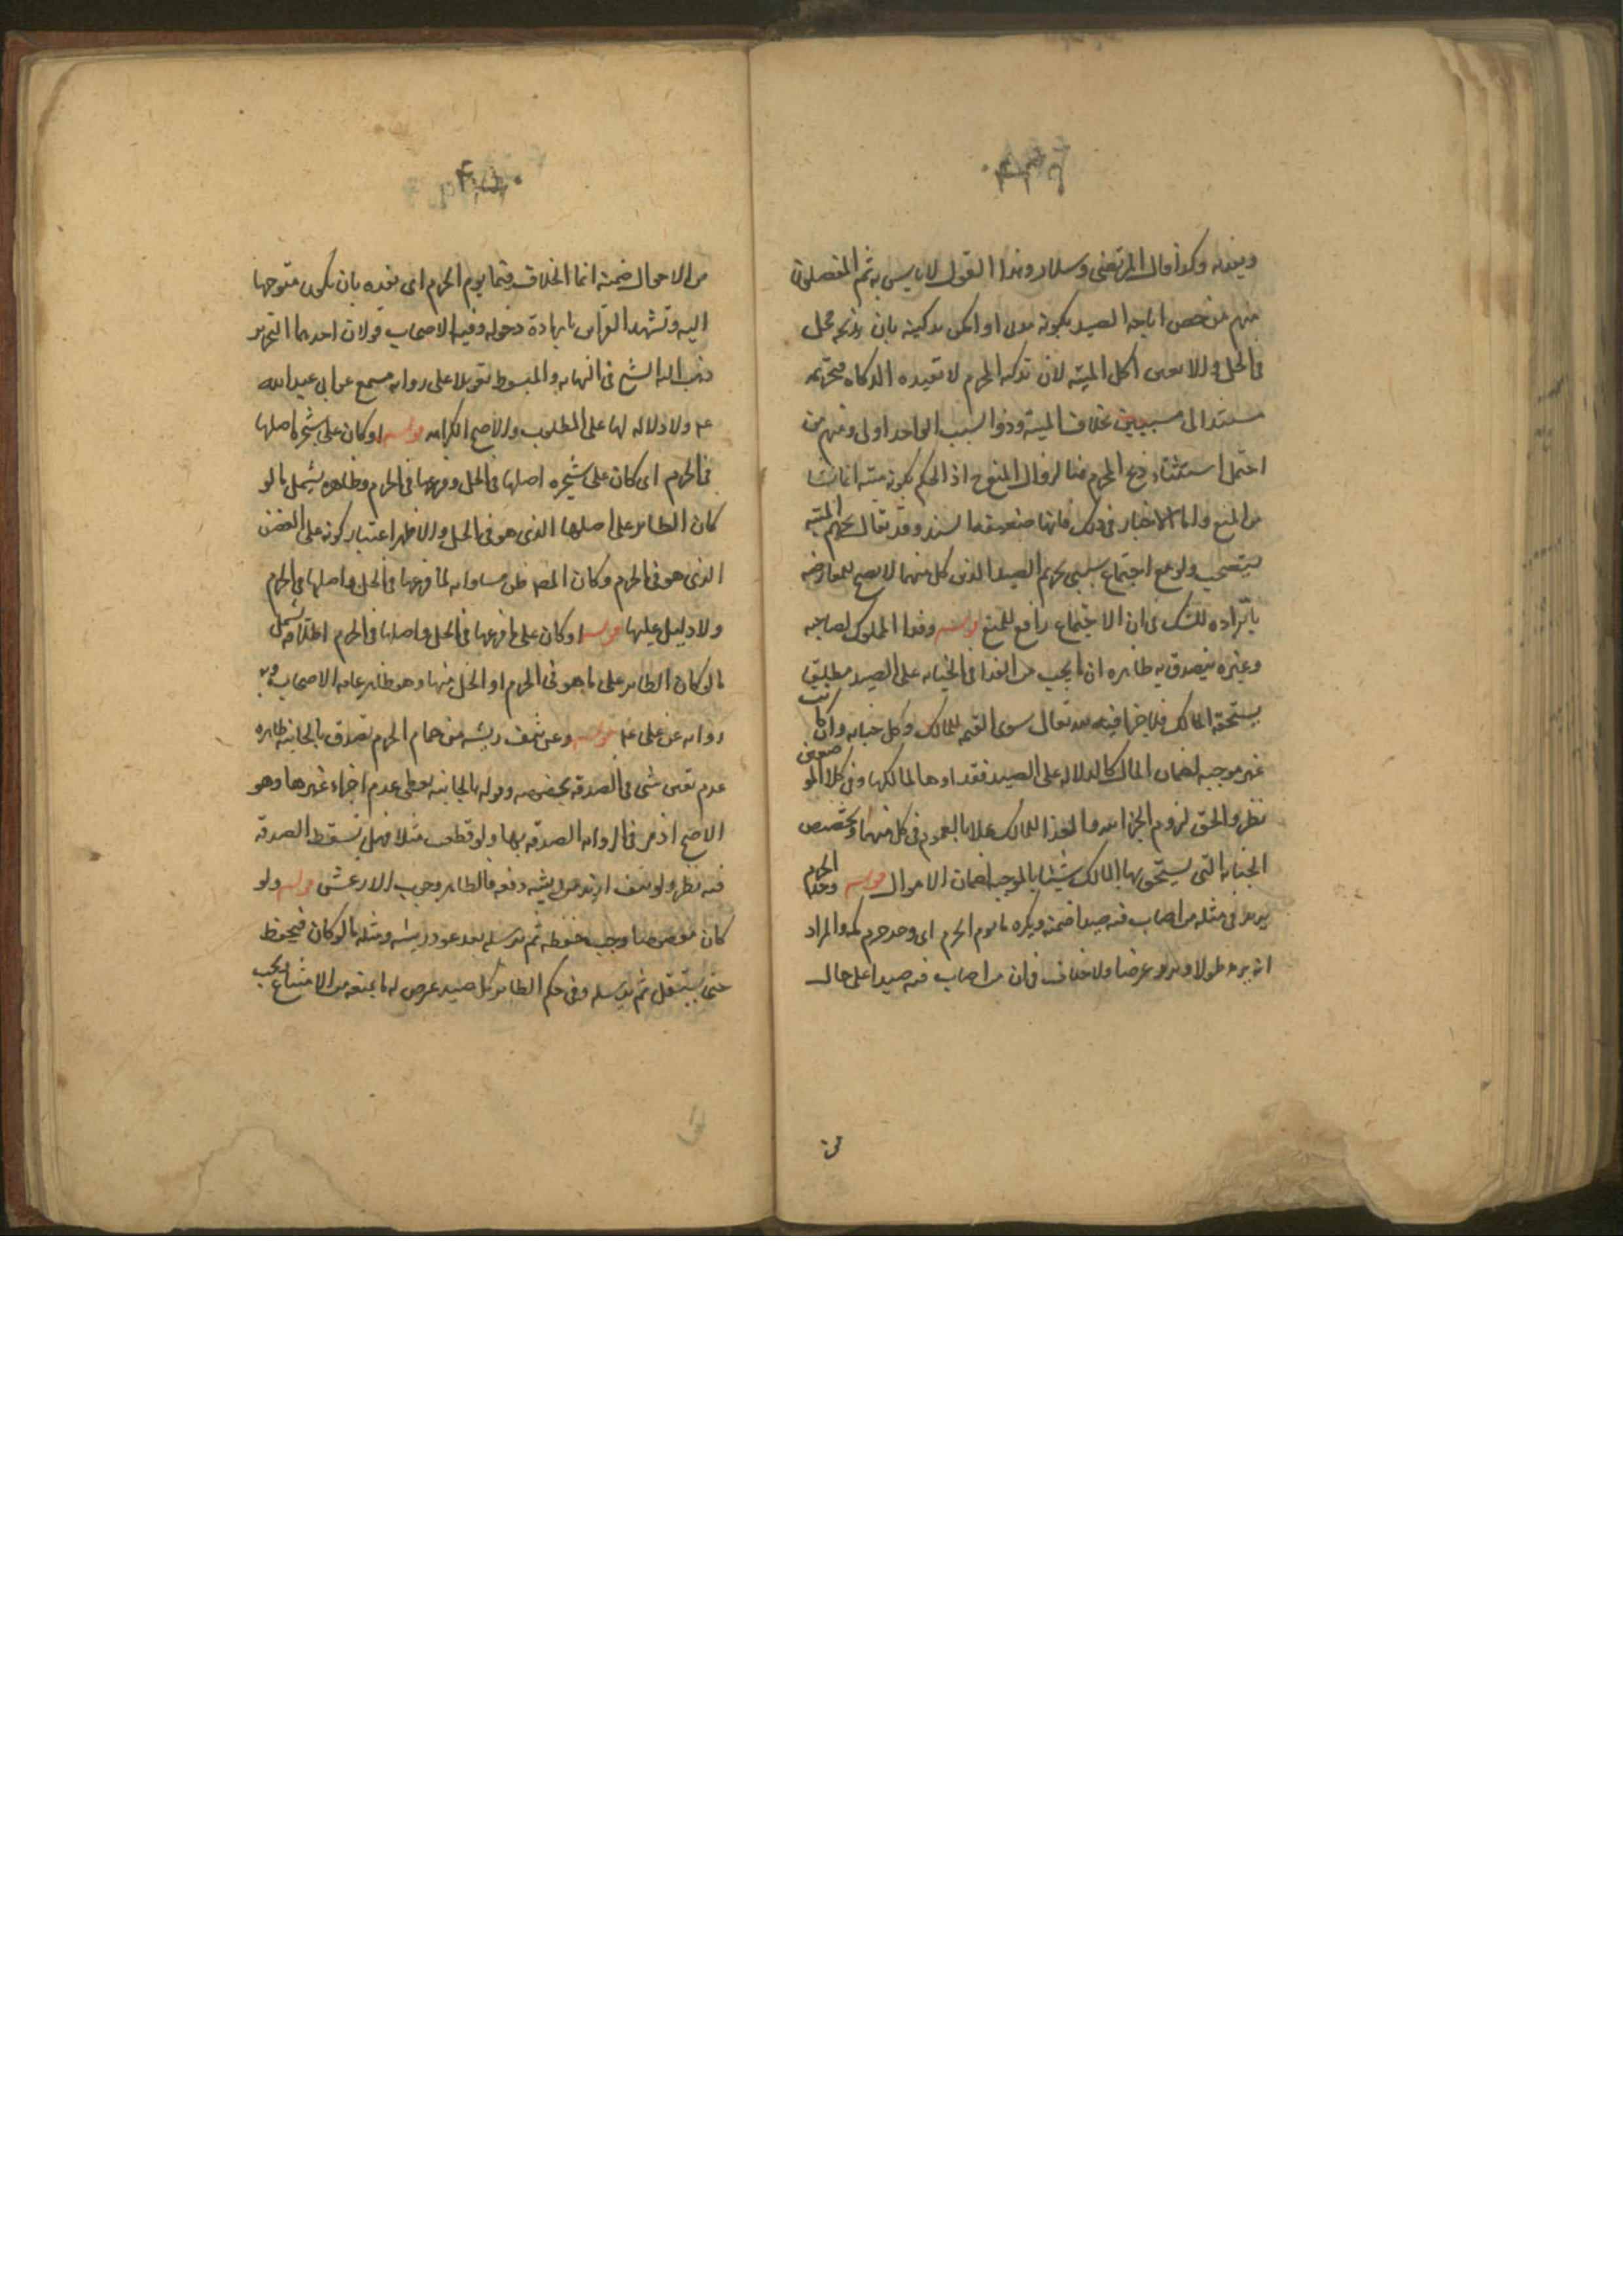 ويفديه وكذا قال المرتضى وسلار وهذا القول لا باس به ثم المفصلون
منهم من خص اباحه الصيد بكونه او امكن تذكيته بان يذبحه محل
فى الحل والا تعين اكل الميته لان تذكيه المحرم لا تفيده الذكاه فتحريمه
مستند الى سببين بخلاف الميته وذو السبب الواحد اولى ومنهم من
احتمل استثناء ذبح المحرم هنا لزوال المنع ح اذ الحكم بكونه ميته انما نشا
من المنع واما الاخبار فى ذلك فانها ضعيفه السند وقد يقال تحريم الميته
يستصحب ولو مع اجتماع سببى تحريم الصيد الذين كل منهما لا يصلح للمعارضه
بانفراده للشك فى ان الاجتماع رافع للمنع قوله وفداء المملوك لصاحبه
وغيره يتصدق به ظاهره ان ما يجب من الفداء فى الجنايه على الصيد مطلق
يستحقه المالك فلا جزاء فيه لله تعالى سوى القيمه للمالك وكل جنايه وان كانت
غير موجبه لضمان المال كالدلاله على الصيد ففداوها لمالكها وفى كلا الموضعين
نظر والحق لزوم الجزاء لله والفداء للمالك عملا بالعموم فى كل منهما وتختص
الجنايه التى يستحق بها المالك شيئا بالموجبه لضمان الاموال قوله وحد الحرم
بريد فى مثله من اصاب فيه صيدا ضمنه ويكره ما يوم الحرم اى وحد حرم مكه والمراد
انه بريد طولا وبريد عرضا ولا خلاف فى ان من اصاب فيه صيدا على حال
من
من الاحوال ضمنه انما الخلاف فيما يوم الحرم اى يقصده بان يكون متوجها
اليه وتشهد القراين بارادة دخوله وفيه للاصحاب قولان احدهما التحريم
ذهب اليه الشيخ فى النهايه والمبسوط تعويلا على روايه مسمع عن ابى عبد الله
ع ولا دلاله لها على المطلوب والاصح الكراهه قوله او كان على شجره اصلها
فى الحرم اى كان على شجره اصلها فى الحل وفرعها فى الحرم وظاهره يشمل ما لو
كان الطاير على اصلها الذى هو فى الحل والاظهر اعتبار كونه على الغصن
الذى هو فى الحرم وكان المصنف ظن مساواته لما فرعها فى الحل واصلها فى الحرم
ولا دليل عليها قوله او كان على ما فرعها فى الحل واصلها فى الحرم اطلاقه يشمل
ما لو كان الطاير على ما هو فى الحرم او الحل منها وهو ظاهر عامه الاصحاب وبه
روايه عن على ع قوله وعن نتف ريشه من حمام الحرم تصدق بالجانيه ظاهره
عدم تعين شى فى الصدقه بخصوصه وقوله بالجانيه يعطى عدم اجزاء غيرها وهو
الاصح اذ مر فى الروايه الصدقه بها ولو قطعت مثلا فهل تسقط الصدقه
فيه نظر ولو نتف ازيد من ريشه دفعه فالظاهر وجوب الارش قوله ولو
كان مقصوصا وجب حفظه ثم يرسله بعد عود ريشه ومثله ما لو كان فيحفظ
حتى يستقل ثم يرسله وفى حكم الطاير كل صيد عرض له ما يمنعه من الامتناع ويجب